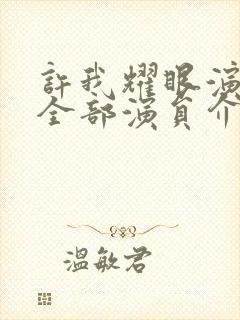 許我耀眼演
全部演員介
溫敏君